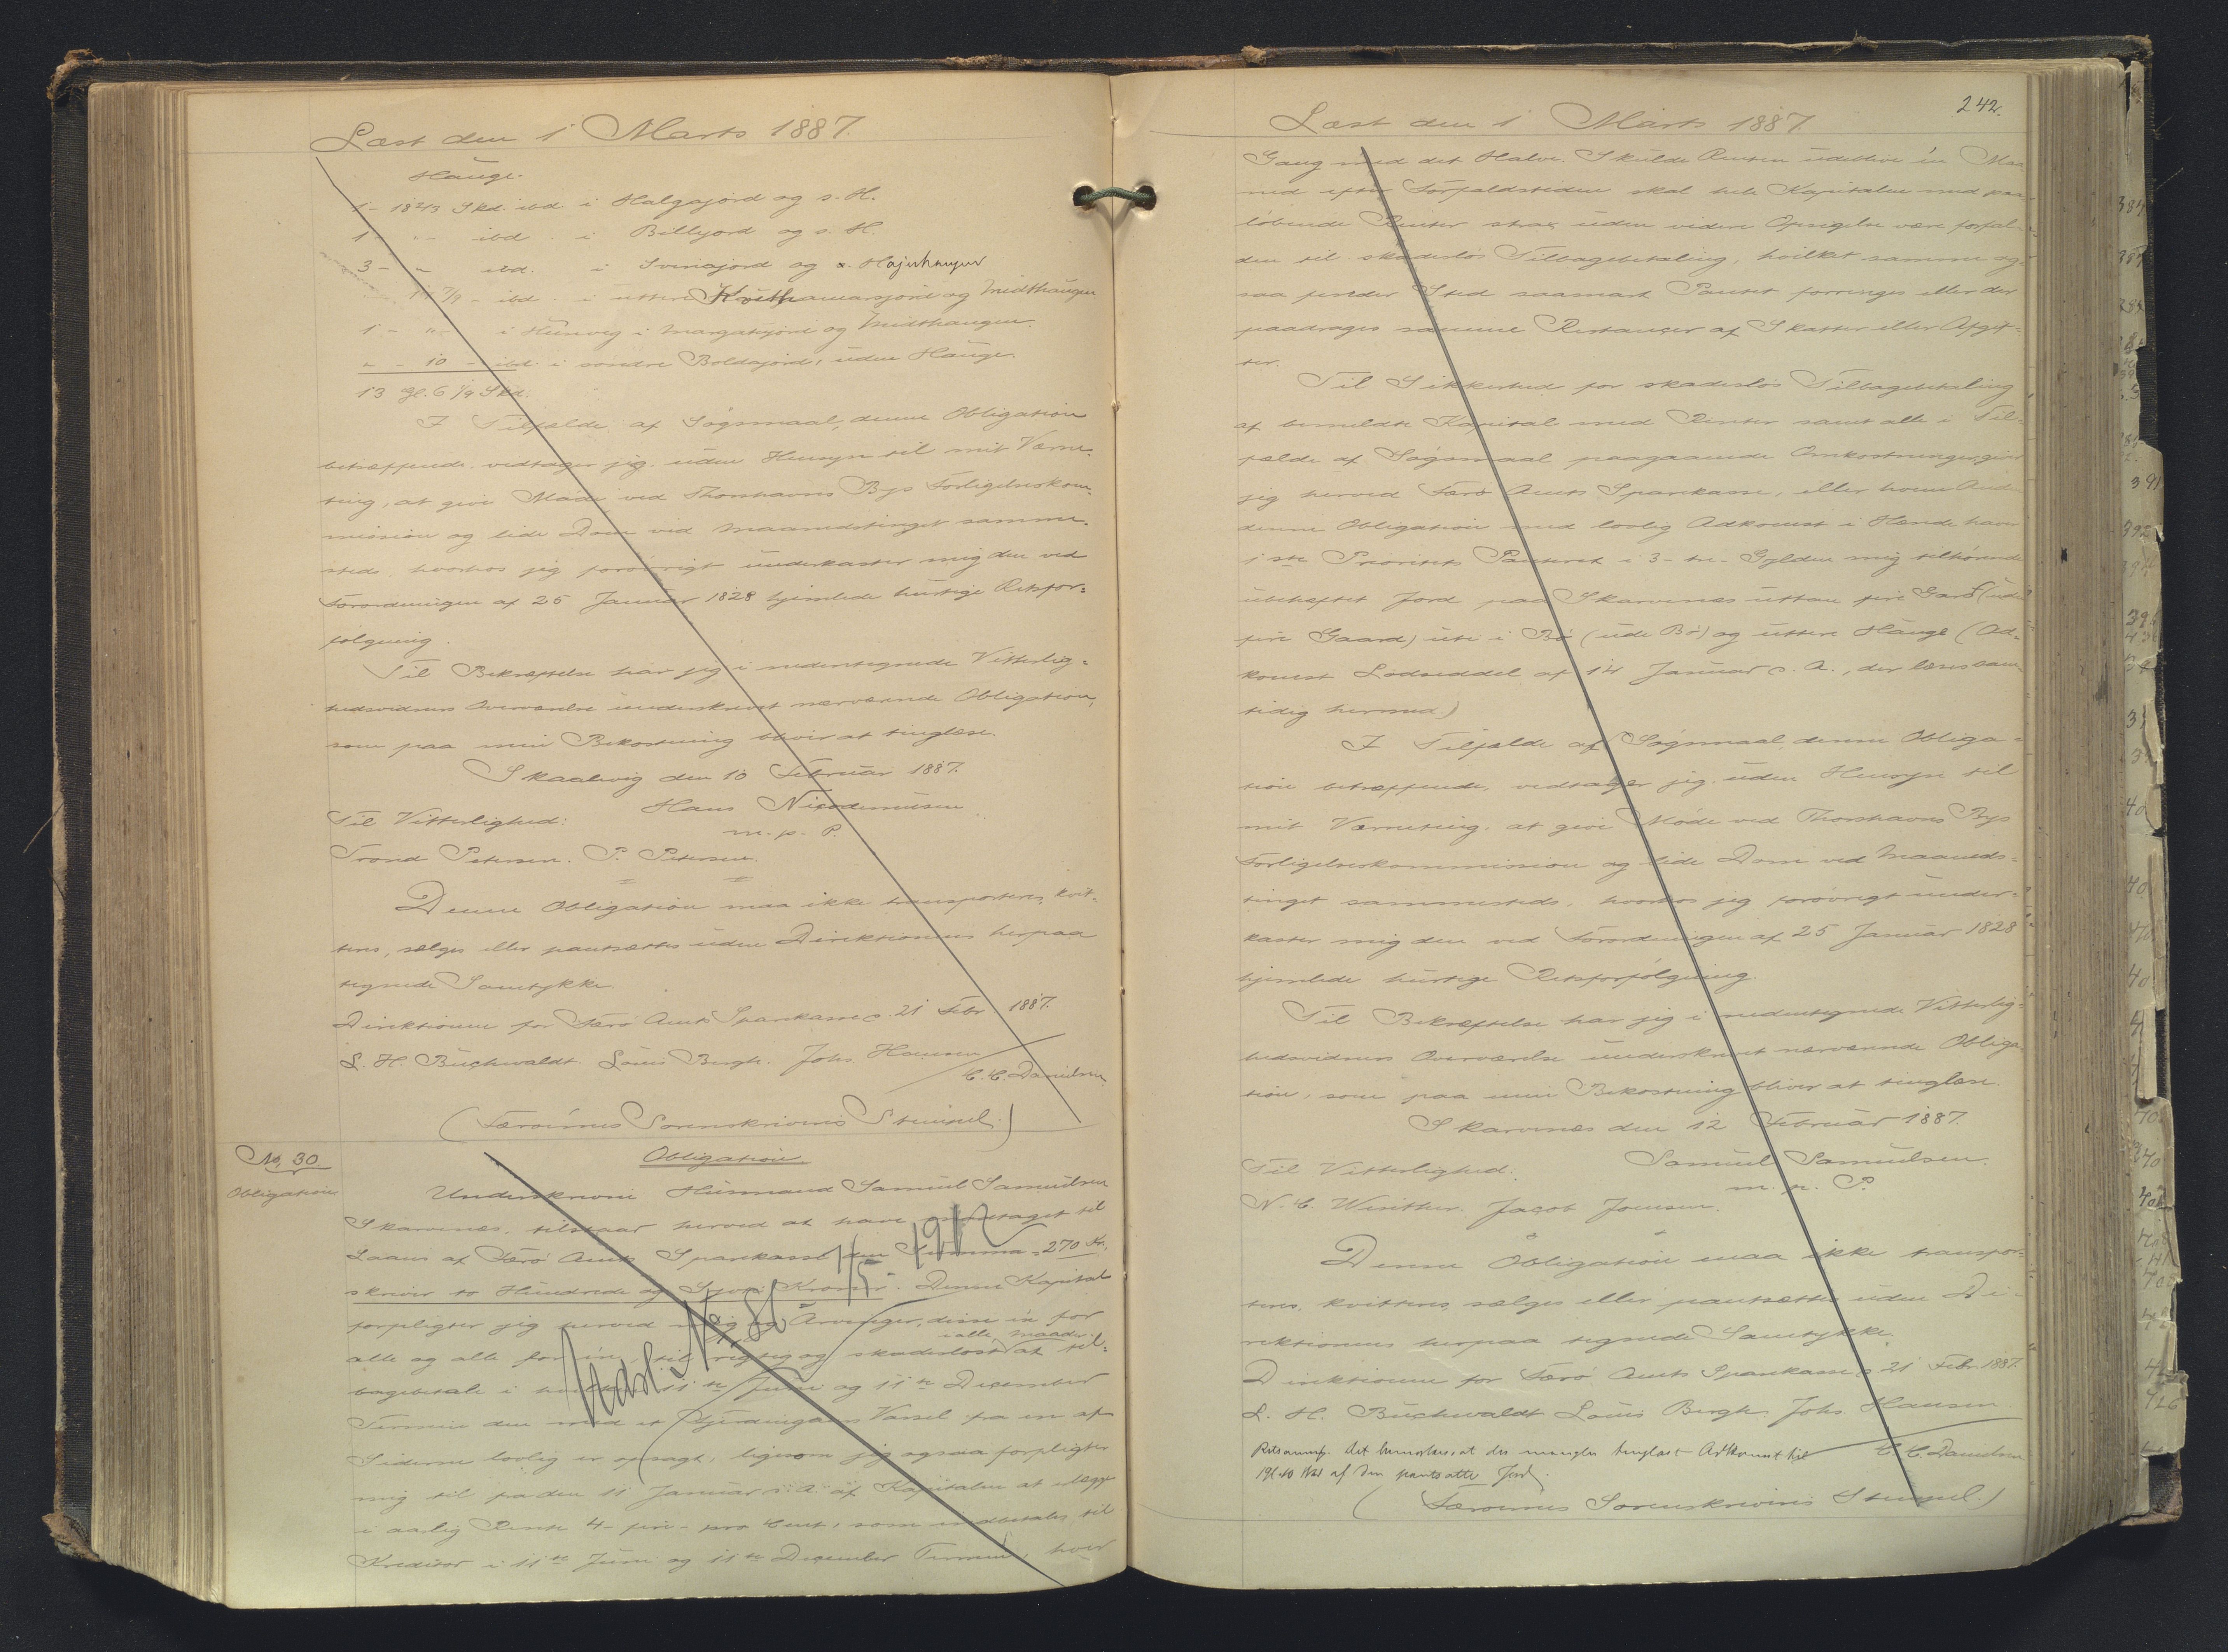 Læst den 1 Marts 1887.
Hauge.
1 - 18 2/3 Skd. ibd i Halgajord og s. H.
1 - " - ibd. i Billjord og s. H.
3 - " ibd. i Svinajord og s. Højuhaugur
14 7/9 - ibd. i uttere Kvithamarsjord og Midthaugen
1 - " - i Húsavig i Margatsjord og Midthaugen.
" - 10 - ibd. i søndre Boldajord, uden Hauge.
13 Gl. 6 1/9 Skd.
I Tilfælde af Søgsmaal, denne Obligation
betræffende, vedtager jeg, uden Hensyn til mit Værne-
ting, at give Møde ved Thorshavns Bys Forligelseskom-
mission og lide Dom ved Maanedstinget samme-
steds, hvorhos jeg forøvrigt underkaster mig den ved
Forordningen af 25 Januar 1828 hjemlede hurtige Retsfor-
følgning.
Til Bekræftelse har jeg i nedentegnede Vitterlig-
hedsvidners Overværelse underskrevet nærværende Obligation,
som paa min Bekostning bliver at tinglæse.
Skaalevig den 10 Februar 1887.
Hans Nicodemusen
Til Vitterlighed: m. p. P.
Trond Petersen. P. Petersen.
Denne Obligation maa ikke transporteres, kvit-
teres, sælges eller pantsættes uden Direktionens herpaa
tegnede Samtykke.
Direktionen for Færø Amts Sparekasse d. 21 Febr 1887.
L. H. Buchwaldt. Louis Bergh. Johs Hansen
C. C. Danielsen
(Færøernes Sorenskriveris Stempel.)
No. 30. Obligation.
Obligation Underskrevne Húsmand Samuel Samuelsen
Skarvenæs, tilstaar herved at have modtaget til
Laans af Færø Amts Sparekasse den Summa 270 Kr,
skriver to Hundrede og Syvti Kroner. Denne Kapital
forpligter jeg herved mig og Arvinger, disse én for
alle og alle for én, til rigtig og skadesløst i alle Maader at til-
bagebetale i hvilken 11te Juni og 11te December
Termin den med et Fjerdingaars Varsel fra en af
Siderne lovlig er opsagt, ligesom jeg ogsaa forpligter
mig til fra den 11 Januar d. A. af Kapitalen at erlægge
i aarlig Rente 4 - fire - pro Cent, som indbetales til
Kreditor i 11te Juni og 11te December Termin, hver
Udsl. No 86 1/5 1912
242.
Læst den 1 Marts 1887
Gang med det Halve. Skulde Renten udeblive én Maa-
ned efter Forfaldstiden skal hele Kapitalen med paa-
løbende Renter strax uden videre Opsigelse være forfal-
den til skadesløs Tilbagebetaling, hvilket samme og-
saa finder Sted saasnart Pantet forringes eller der
paadrages samme Restancer af Skatter eller Afgif-
ter.
Til Sikkerhed for skadesløs Tilbagebetaling
af bemeldte Kapital med Renter samt alle i Til-
fælde af Søgsmaal paagaaende Omkostninger, giver
jeg herved Færø Amts Sparekasse, eller hvem Anden
denne Obligation med lovlig Adkomst i Hænde haver
1ste Prioritets Panteret i 3 - tre - Gylden mig tilhørende
ubehæftet Jord paa Skarvenæs uttan fire Gard (uden
fire Gaard) úte i Bø (ude Bø) og uttere Hauge (Ad-
komst Lodseddel af 14 Januar d. A., der læses sam-
tidig hermed)
I Tilfælde af Søgsmaal, denne Obliga-
tion betræffende, vedtager jeg, uden Hensyn til
mit Værneting, at give Møde ved Thorshavns Bys
Forligelseskommission og lide Dom ved Maaneds-
tinget sammesteds, hvorhos jeg forøvrigt under-
kaster mig den ved Forordningen af 25 Januar 1828
hjemlede hurtige Retsforfølgning.
Til Bekræftelse har jeg i nedentegnede Vitterlig-
hedsvidners Overværelse underskrevet nærværende Obliga-
tion, som paa min Bekostning bliver at tinglæse.
Skarvenæs den 12 Februar 1887.
Til Vitterlighed. Samuel Samuelsen.
m. p. P.
N. C. Winther. Jacob Joensen.
Denne Obligation maa ikke transpor-
teres, kvitteres, sælges eller pantsættes uden Di-
rektionens herpaa tegnede Samtykke.
Direktionen for Færø Amts Sparekasse, d. 21 Febr. 1887.
L. H. Buchwaldt Louis Bergh. Johs Hansen
C. C. Danielsen
Retsanmk. Det bemærkes, at der mangler tinglæst Adkomst til
af den pantsatte Jord.
(Færøernes Sorenskriveris Stempel.)